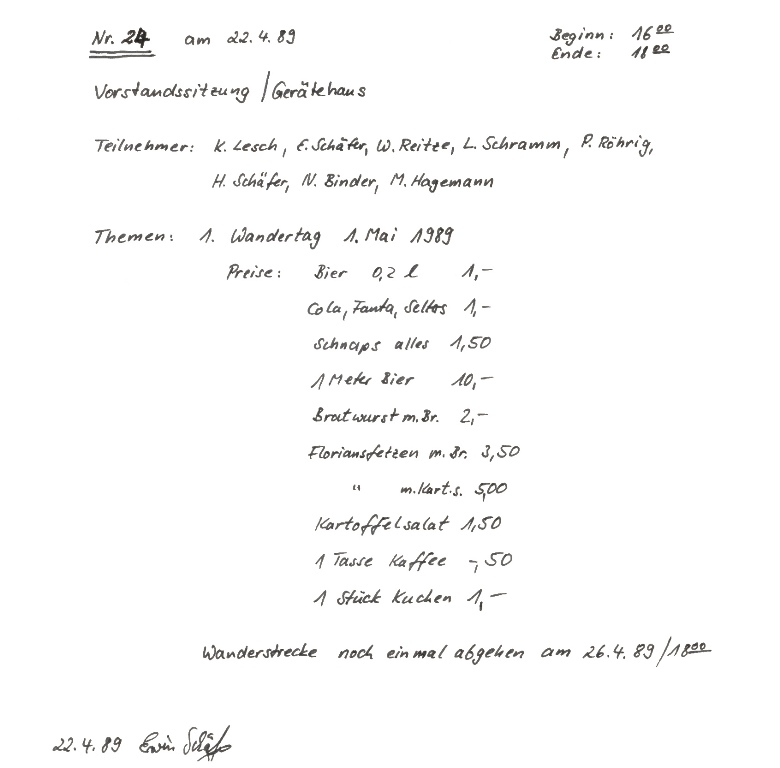 Nr. 24 am 22.4.89 Beginn: 16 00
Ende: 18 00
Vorstandssitzung / Gerätehaus
Teilnehmer: K. Lesch, E. Schäfer, W. Reitze, L. Schramm, P. Röhrig,
H. Schäfer, N. Binder, M. Hagemann
Themen: 1. Wandertag 1. Mai 1989
Preise: Bier 0,2 l 1,-
Cola, Fanta, Selters 1,-
Schnaps alles 1,50
1 Meter Bier 10,-
Bratwurst m. Br. 2,-
Floriansfetzen m. Br. 3,50
" m. Kart.s. 5,00
Kartoffelsalat 1,50
1 Tasse Kaffee -,50
1 Stück Kuchen 1,-
Wanderstrecke noch einmal abgehen am 26.4.89 / 18 00
22.4.89 Erwin Schäfer